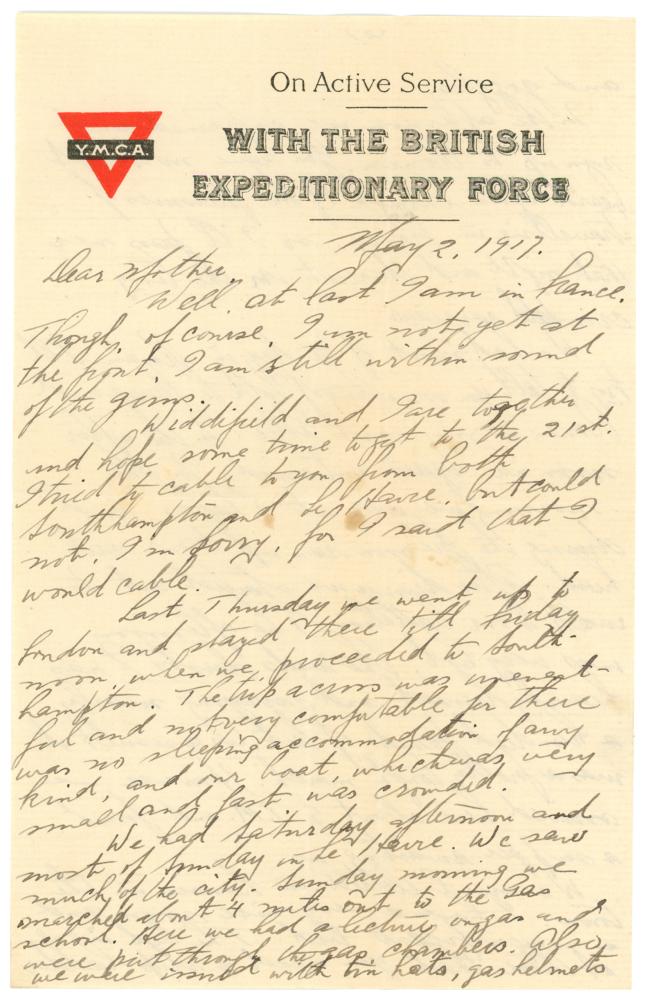 On Active Service
WITH THE BRITISH
Y.M.C.A.
EXPEDITIONARY FORCE
May 2, 1917.
Dear Mother.
Well, at last I am in France.
Though, of course, I am not yet at
the front, I am still within sound
of the guns.
Widdifield and I are together
and hope some time to get to the 21st.
I tried to cable to you from both
Southhampton and Le Havre, but could
not. I'm sorry, for I said that I
would cable.
Last Thursday we went up to
London and stayed there till Friday
noon, when we proceeded to South-
hampton. The trip across was unevent-
ful and not very comfortable for there
was no sleeping accommodation of any
kind, and our boat, which was very
small and fast was crowded.
We had Saturday afternoon and
most of Sunday in Le Havre. We saw
much of the city. Sunday morning we
marched about 4 miles out to the Gas
school. Here we had a lecture on gas and
were put through the gas chambers. Also,
we were issued with tin hats, gas helmets